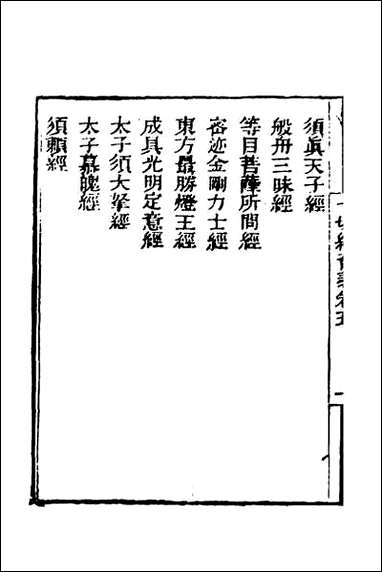 須眞天子經
般舟三昧經
等目菩薩所問經
密迹金剛力士經
東方最勝燈王經
成具光明定意經
太子須大拏經
太子慕魄經
須賴經
一切經音義卷五
一